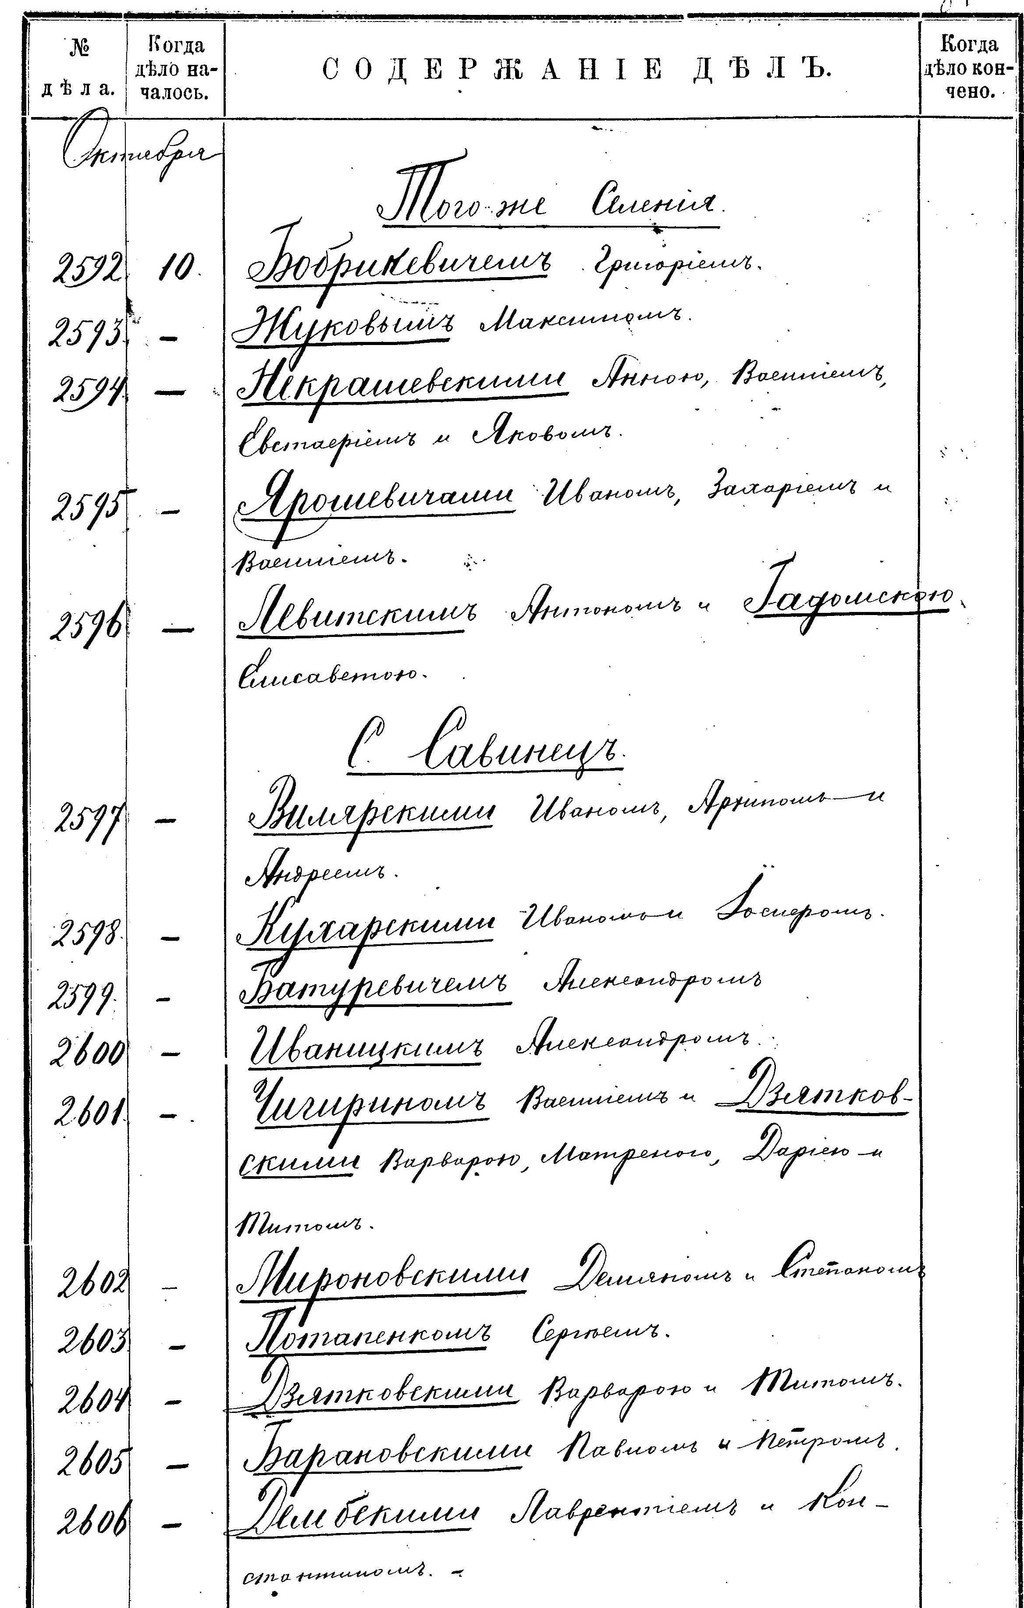 № дѣла. Когда дѣло началось. СОДЕРЖАНІЕ ДѢЛЪ. Когда дѣло кончено.
Октября
Того-же Селенія.
2592 10. Бобрикевичемъ Григоріемъ.
2593. — Жуковымъ Максимомъ.
2594 — Некрашевскими Анною, Василіемъ,
Евстафіемъ и Яковомъ.
2595 — Ярошевичами Иваномъ, Захаріемъ и
Василіемъ.
2596 — Левитскимъ Антономъ и Гадомскою
Елисаветою.
С. Савинецъ.
2597 — Вилярскими Иваномъ, Архипомъ и
Андреемъ.
2598. — Кухарскими Иваномъ и Іосифомъ.
2599. — Батуревичемъ Александромъ
2600 — Иваницкимъ Александромъ.
2601. — Чигириномъ Василіемъ и Дзятков-
скими Варварою, Матреною, Даріею и
Титомъ.
2602 — Мироновскими Демяномъ и Степаномъ
2603 — Потапенкомъ Сергѣемъ.
2604 — Дзятковскими Варварою и Титомъ.
2605 — Барановскими Павломъ и Петромъ.
2606 — Дембскими Лаврентіемъ и Кон-
стантиномъ. —